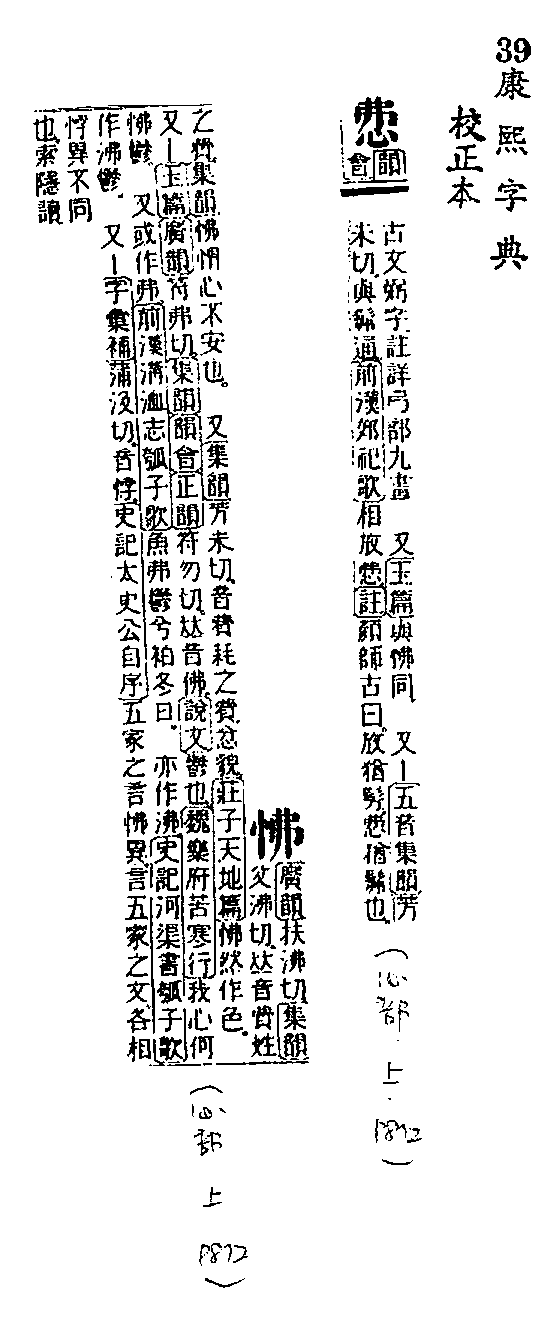 39康熙字典
校正本
𢘍
韻會
古文㣂字註詳弓部九畫　又玉篇與怫同　又—五音集韻芳
未切與髴通前漢郊祀歌相放𢘍註顏師古曰放猶髣𢘍猶髴也
(心部　上　P812)
怫
廣韻扶沸切集韻
父沸切𠀤音費姓
之費集韻怫㥜心不安也。又集韻芳未切音費耗之費忿貌莊子天地篇怫然作色。
又—玉篇廣韻符弗切集韻韻會正韻符勿切𠀤音佛說文鬱也魏樂府苦寒行我心何
怫鬱　又或作弗前漢溝洫志瓠子歌魚弗鬱兮柏冬日。亦作沸史記河渠書瓠子歌
作沸鬱。又—字彙補蒲沒切音悖史記太史公自序五家之言怫異言五家之文各相
悖異不同
也索隱讀
(心部　上　P812)